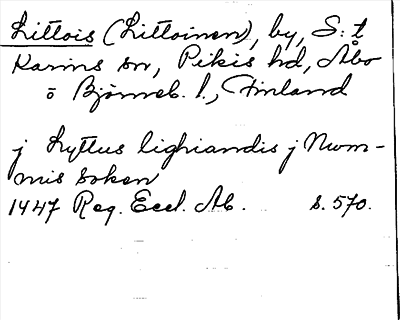 Littois (Littoinen), by, S:t
Karins sn, Pikis hd, Åbo
o Björneb. l., Finland
j Lyttus lighiandis j Num-
mis soken
1447 Reg. Eccl. Ab. s. 570.